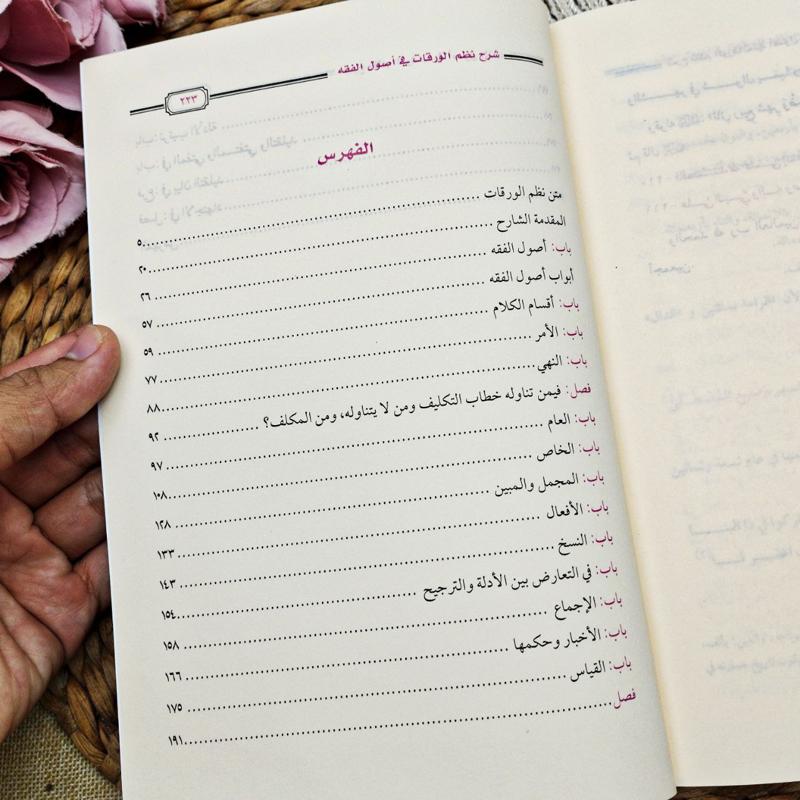 شرح نظم الورقات في أصول الفقه ٢٢٣
الفهرس
متن نظم الورقات ........ ٥
المقدمة الشارح ........ ٢٠
باب: أصول الفقه ........ ٢٦
أبواب أصول الفقه ........ ٥٧
باب: أقسام الكلام ........ ٥٩
باب: الأمر ........ ٧٧
باب: النهي ........ ٨٨
فصل: فيمن تناوله خطاب التكليف ومن لا يتناوله، ومن المكلف؟ ........ ٩٢
باب: العام ........ ٩٧
باب: الخاص ........ ١٠٨
باب: المجمل والمبين ........ ١٢٨
باب: الأفعال ........ ١٣٣
باب: النسخ ........ ١٤٣
باب: في التعارض بين الأدلة والترجيح ........ ١٥٤
باب: الإجماع ........ ١٥٨
باب: الأخبار وحكمها ........ ١٦٦
باب: القياس ........ ١٧٥
فصل ........ ١٩١